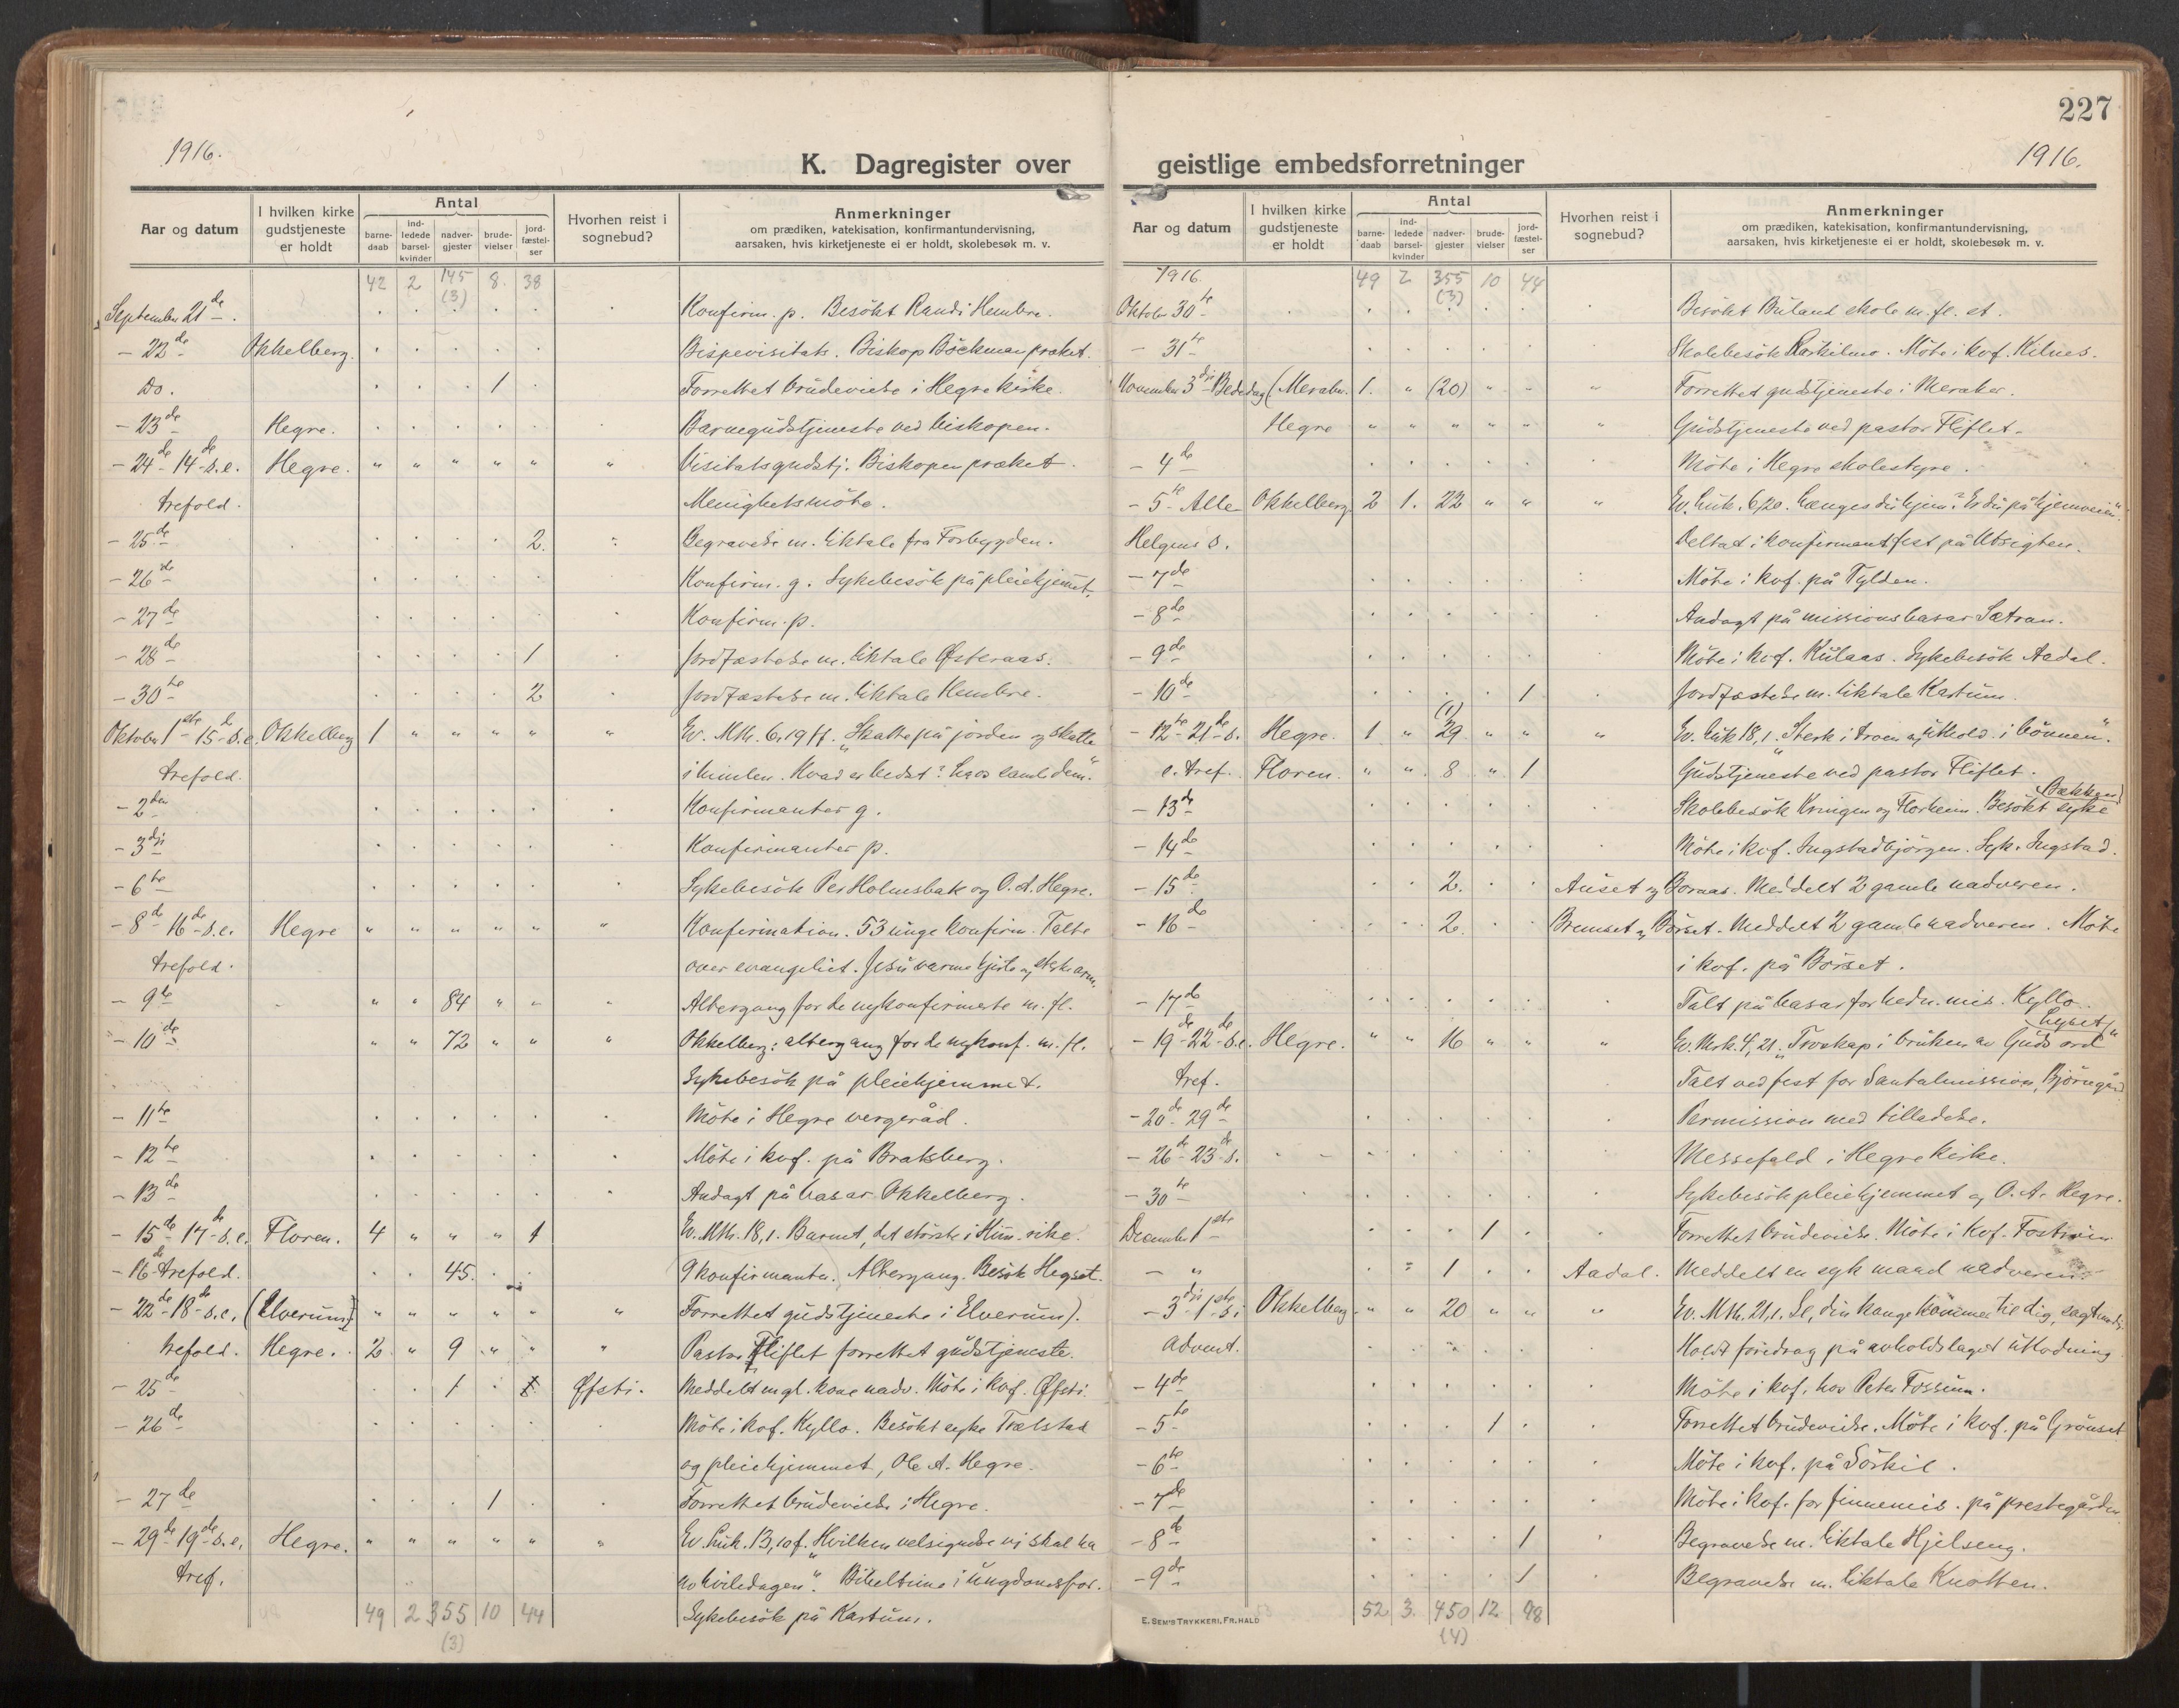 227
1916.
K. Dagregister over
Aar og datum
I hvilken kirke gudstjeneste er holdt
Antal
barne-daab
ind-ledede barsel-kvinder
nadver-gjester
brude-vielser
jord-fæstel-ser
Hvorhen reist i sognebud?
Anmerkninger
om prædiken, katekisation, konfirmantundervisning,
aarsaken, hvis kirketjeneste ei er holdt, skolebesøk m. v.
42 2 145 (3) 8. 38
September 21de. Konfirm. p. Besökt Randi Hembre.
- 22de Okkelberg. Bispevisitats. Biskop Böckman præket.
Do. 1 Forrettet brudevielse i Hegre kirke.
- 23de Hegre. Barnegudstjeneste ved biskopen.
- 24de 14de s.e. Hegre. " " " " " " Visitatsgudstj. Biskopen præket.
trefold. Menighetsmöte.
- 25de 2. Begravelse m. liktale fra Forbygden.
- 26de Konfirm. g. Sykebesök på pleiehjemmet.
- 27de Konfirm. p.
- 28de 1 Jordfæstelse m. liktale Østeraas.
- 30te 2 Jordfæstelse m. liktale Hembre.
Oktober 1ste 15de s.e. Okkelberg 1 " " " " " Ev. Mth. 6,19 ff. "Skatte på jorden og skatte
trefold. i himlen. Hvad er bedst? Hvor samle dem".
- 2den Konfirmanter g.
- 3dje Konfirmanter p.
- 6te Sykebesök Per Holmsbak og O. A. Hegre.
- 8de 16de s.e. Hegre " " " " " " Konfirmation. 53 unge konfirm. Talte
trefold. over evangeliet. Jesu varme hjerte og sterke arm.
- 9de " " 84 " " Altergang for de nykonfirmerte m. fl.
- 10de " " 72 " " " Okkelberg: altergang for de nykonf. m. fl.
Sykebesök på pleiehjemmet.
- 11te Möte i Hegre vergeråd.
- 12te Möte i kvf. på Bratsberg.
- 13de Andagt på basar Okkelberg.
- 15de 17de s.e. Floren. 4 " " " 1 Ev. Mth. 18,1. Barnet, det störste i Him. rike.
- 16de trefold. 45. 9 konfirmanter. Altergang. Besök Hegset.
- 22de 18de s.e. (Elverum) " " " " " " Forrettet gudstjeneste i Elverum).
trefold. Hegre. 2 " 9 " " " Pastor Fliflet forrettet gudstjeneste.
- 25de 1 Øfsti. Meddelt en gl. kone nadv. Möte i kvf. Øfsti.
- 26de Möte i kvf. Kyllo. Besökt syke Trælstad
og pleiehjemmet, Ole A. Hegre.
- 27de 1 Forrettet brudevielse i Hegre.
- 29de 19de s.e. Hegre. " " " " " " Ev. Luk. 13,10 f. "Hvilken velsignelse vi skal ha
tref. av hviledagen". Bibeltime i ungdomsfor.
49 2 355 (3) 10 44 Sykebesök på Kartum.
geistlige embedsforretninger
1916.
Aar og datum
I hvilken kirke gudstjeneste er holdt
Antal
barne-daab
ind-ledede barsel-kvinder
nadver-gjester
brude-vielser
jord-fæstel-ser
Hvorhen reist i sognebud?
Anmerkninger
om prædiken, katekisation, konfirmantundervisning,
aarsaken, hvis kirketjeneste ei er holdt, skolebesøk m. v.
1916. 49 2 355 (3) 10 44
Oktober 30te Besökt Buland skole m. fl. st.
- 31te Skolebesök Raskilmo. Möte i kvf. Kilnes.
November 3dje Bededag (Meraker. 1. " (20) " " " Forrettet gudstjeneste i Meraker.
Hegre " " " " " " Gudstjeneste ved pastor Fliflet.
- 4de Möte i Hegre skolestyre.
- 5te Alle Okkelberg 2 1. 22 " " " Ev. Luk. 6,20. Længes du hjem? Er du på hjemveien".
Helgens s. Deltat i konfirmantfest på Utsigten.
- 7de Möte i kvf. på Tylden.
- 8de Andagt på missionsbasar Sætran.
- 9de Möte i kvf. Kulaas. Sykebesök Aadal.
- 10de 1 Jordfæstelse m. liktale Kartum.
- 12te 21de s. Hegre. 1 " (1) 29 " " " Ev. Luk 18,1. "Sterk i troen og uthold. i bönnen".
e. tref. Floren. " " 8 " 1 Gudstjeneste ved pastor Fliflet.
- 13de Skolebesök Kringen og Florheim. Besökt syke Bækken
- 14de Möte i kvf. Ingstadbjörgen. Syk. Ingstad.
- 15de 2. Auset og Boraas. Meddelt 2 gamle nadveren.
- 16de 2. Bremset og Börset. Meddelt 2 gamle nadveren. Möte
i kvf. på Börset.
- 17de Talt på basar for hedn. mis. Kyllo.
- 19de 22de s.e. Hegre. " " 16 " " " Ev. Mrk. 4,21. "Troskap i bruken av Guds ord" Lyset
tref. Talt ved fest for Santalmission, Björngård
- 20de 29de Permission med tilladelse.
- 26de 23de s. Messefald i Hegre kirke.
- 30te Sykebesök pleiehjemmet og O. A. Hegre.
December 1ste 1 Forrettet brudevielse. Möte i kvf.
- " 1 Aadal. Meddelt en syk mand nadveren.
- 3dje 1ste s. i Okkelberg " " 20 " " " Ev. Mth. 21,1. Se, din konge kommer til dig, sagtmodig
Advent. Holdt foredrag på avholdslaget utlodning
- 4de Möte i kvf. hos Peter Fossum.
- 5te 1 Forrettet brudevielse. Möte i kvf. på Grönset
- 6te Möte i kvf. på Sörkil.
- 7de Möte i kvf. for finnemis. på prestegården
- 8de 1 Begravelse m. liktale Hjelseng.
- 9de 1 Begravelse m. liktale Knotten.
E. SEM'S TRYKKERI, FR. HALD
52 3. 450 (4) 12 48